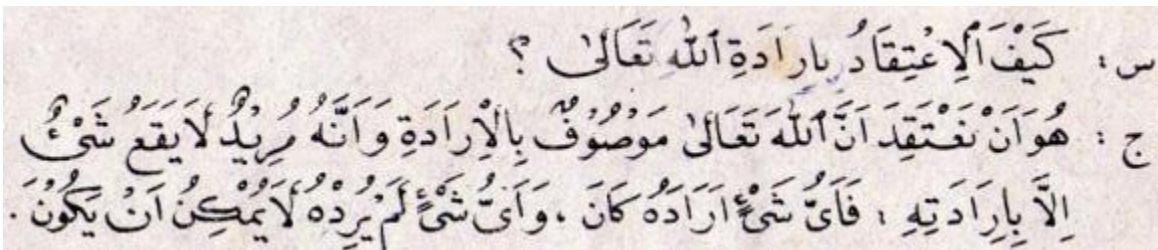 س : كَيْفَ ٱلِاعْتِقَادُ بِارَادَةِ ٱللّٰهِ تَعَالىٰ ؟
ج : هُوَ اَنْ نَعْتَقِدَ اَنَّ ٱللّٰهَ تَعَالىٰ مَوْصُوْفٌ بِالْاِرَادَةِ وَاَنَّهُ مُرِيْدٌ لَا يَقَعُ شَىْءٌ
اِلَّا بِاِرَادَتِهِ ، فَاَىُّ شَىْءٍ اَرَادَهُ كَانَ ، وَاَىُّ شَىْءٍ لَمْ يُرِدْهُ لَا يُمْكِنُ اَنْ يَكُوْنَ .